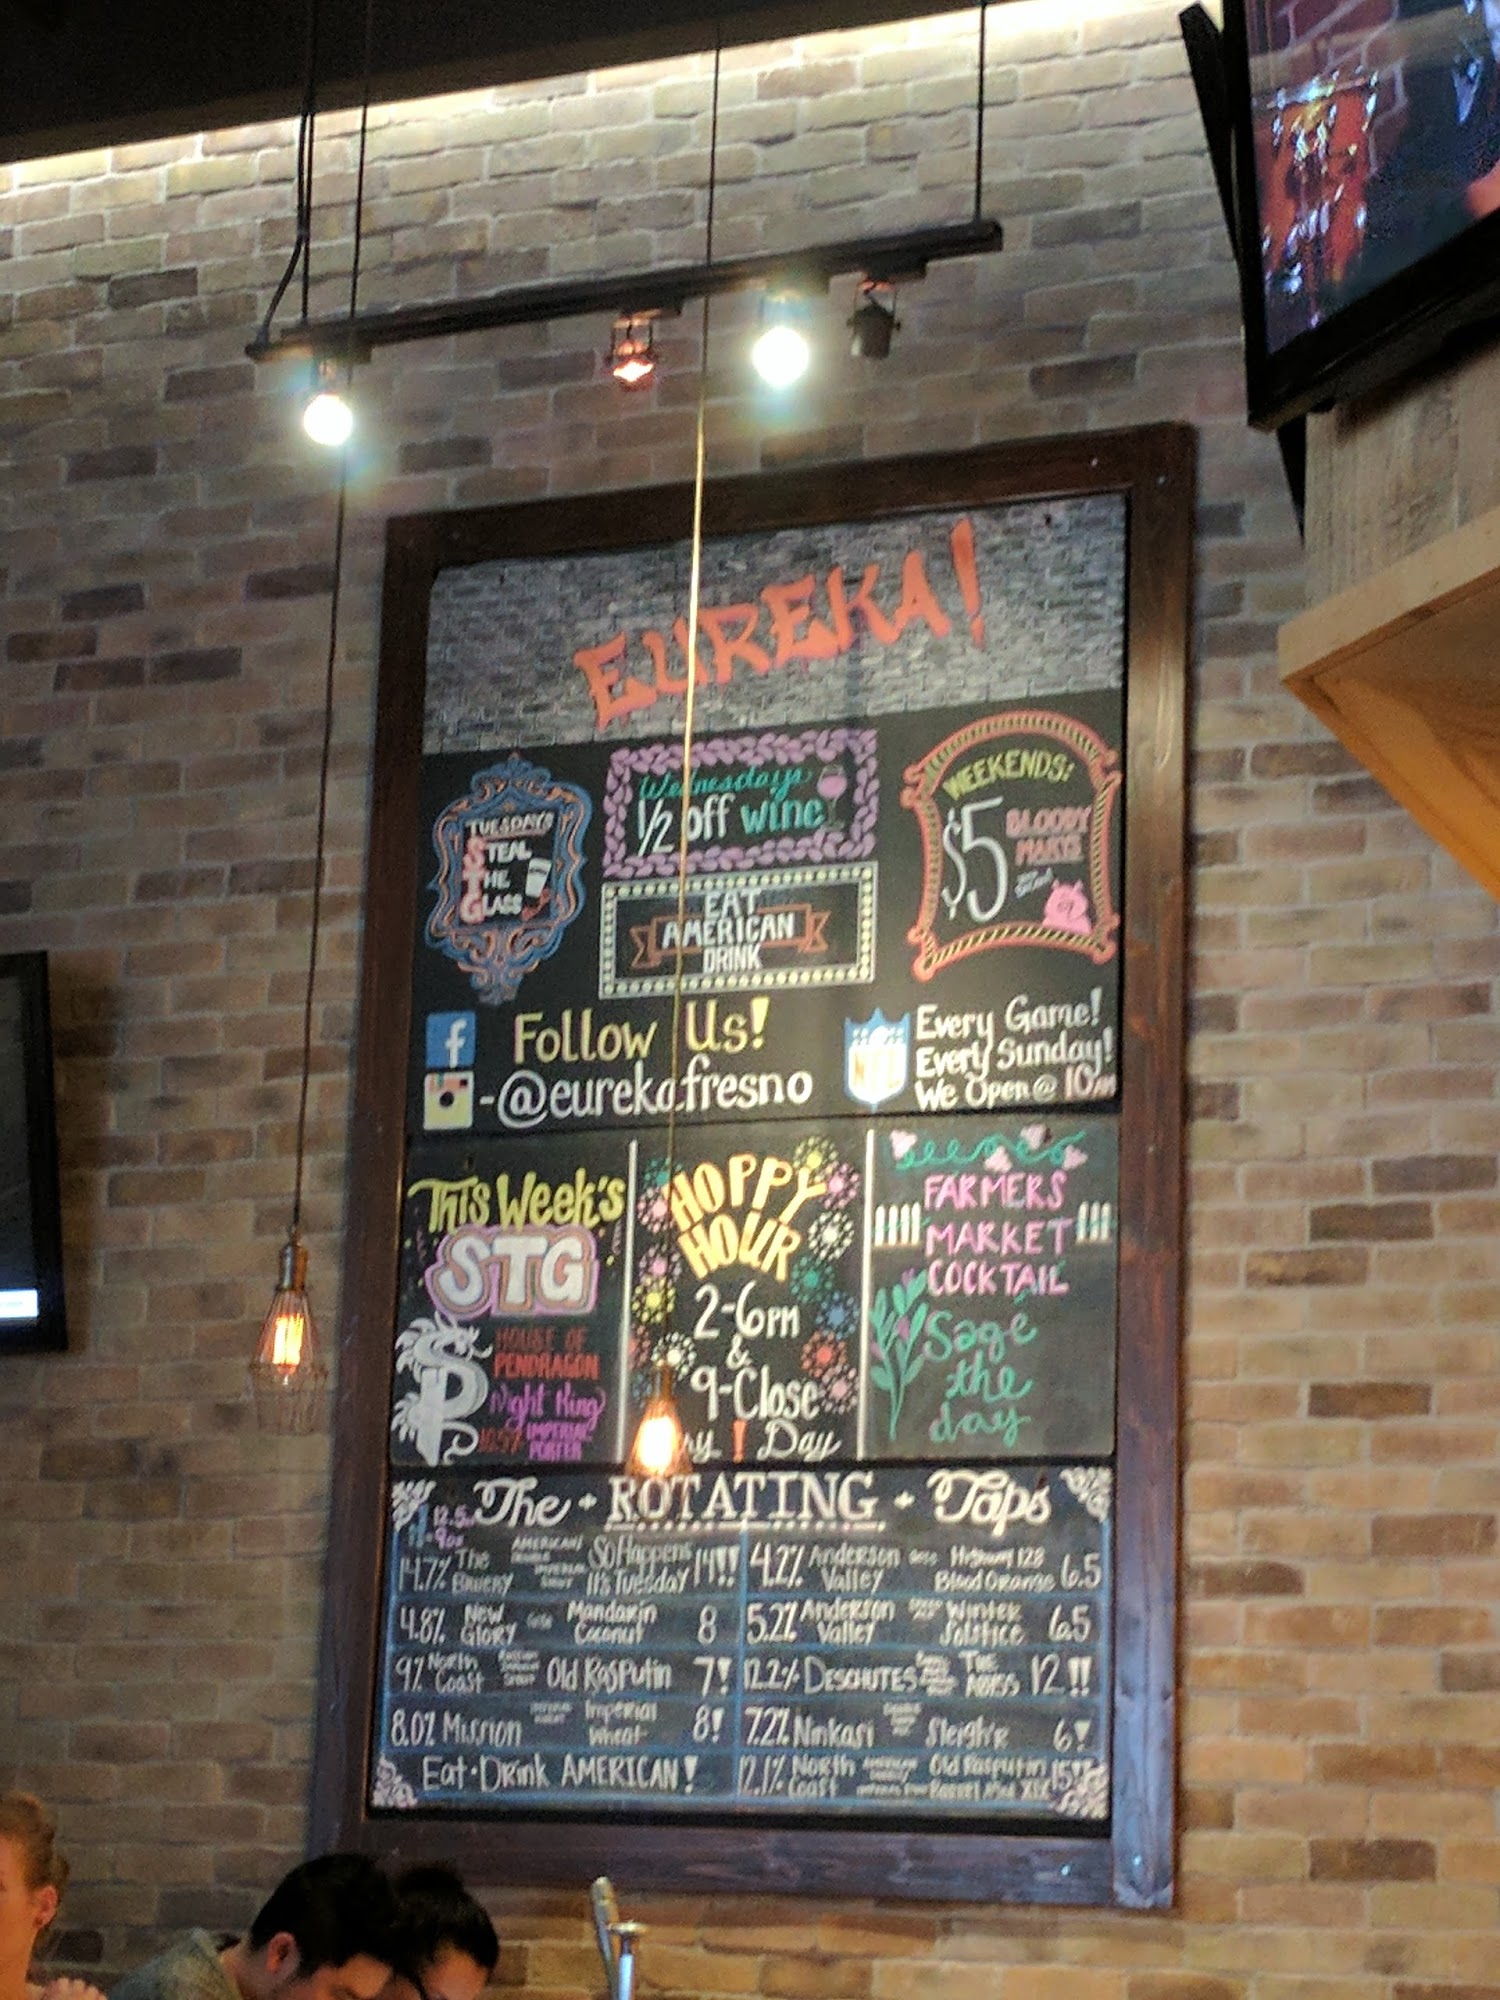 EUREKA!
TUESDAYS
STEAL
THE
GLASS
Wednesdays
1/2 off wine
EAT
AMERICAN
DRINK
WEEKENDS:
$5 BLOODY
MARYS
f Follow Us!
-@eurekafresno
NFL
Every Game!
Every Sunday!
We Open @ 10AM
This Week's
STG
HOUSE OF
PENDRAGON
Night King
IMPERIAL
PORTER
HOPPY
HOUR
2-6PM
&
9-Close
! Day
FARMERS
MARKET
COCKTAIL
Sage
the
day
The - ROTATING - Taps
14.7% The Bruery AMERICAN So Happens It's Tuesday 14!!
4.8% New Glory Mandarin Coconut 8
9% North Coast Old Rasputin 7!
8.0% Mission Imperial Wheat 8!
Eat·Drink AMERICAN!
4.2% Anderson Valley Gose Highway 128 Blood Orange 6.5
5.2% Anderson Valley Winter Solstice 6.5
12.2% DESCHUTES THE ABYSS 12!!
7.2% Ninkasi Sleigh'r 6!
12.1% North Coast Old Rasputin Barrel